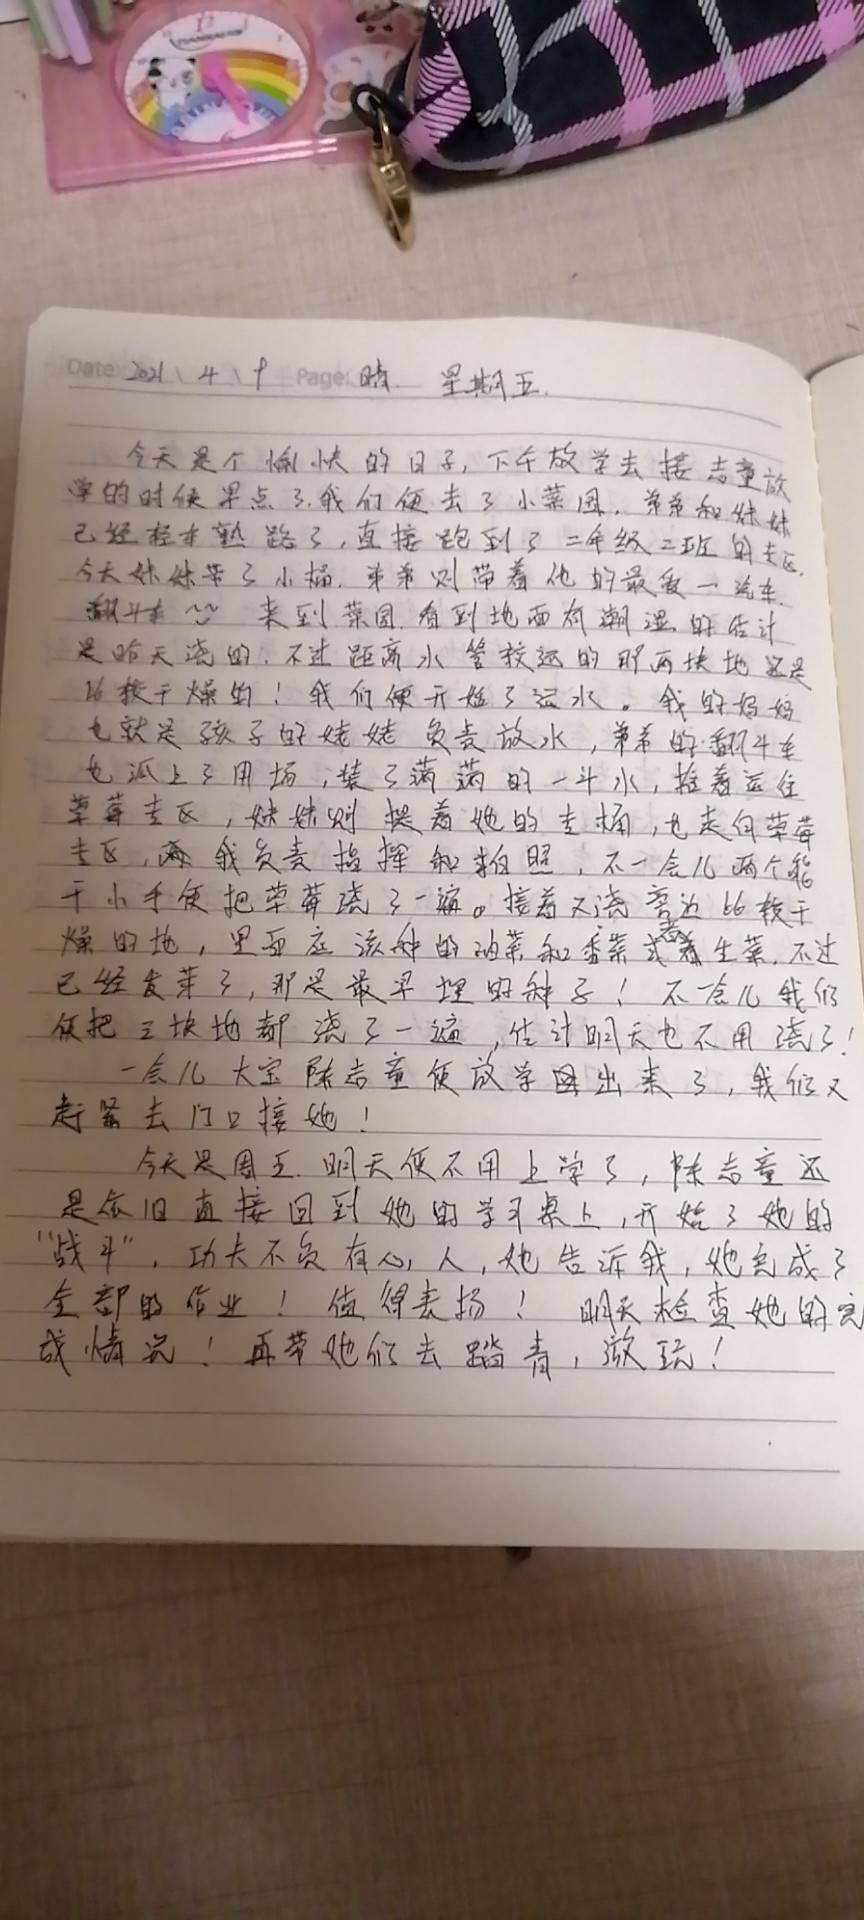 Date: 2021 \ 4 \ 9 Page: 晴. 星期五.
今天是个愉快的日子，下午放学去接志童放
学的时候早点了.我们便去了小菜园，弟弟和妹妹
已经轻车熟路了，直接跑到了二年级二班的专区.
今天妹妹带了小桶.弟弟则带着他的最爱一汽车.
翻斗车 来到菜园.看到地面有潮湿的估计
是昨天浇的.不过距离水管较远的那两块地还是
比较干燥的！我们便开始了浇水。我的妈妈
也就是孩子的姥姥负责放水，弟弟的翻斗车
也派上了用场，装了满满的一斗水，推着运往
草莓专区，妹妹则提着她的专桶，也走向草莓
专区，而我负责指挥和拍照，不一会儿两个能
干小手便把草莓浇了一遍。接着又浇旁边比较干
燥的地，里面应该种的油菜和香菜或者生菜.不过
已经发芽了，那是最早埋的种子！不一会儿我们
便把三块地都浇了一遍，估计明天也不用浇了！
一会儿大宝陈志童便放学出来了，我们又
赶紧去门口接她！
今天是周五.明天便不用上学了，陈志童还
是依旧直接回到她的学习桌上，开始了她的
"战斗"，功夫不负有心人，她告诉我，她完成了
全部的作业！值得表扬！明天检查她的完
成情况！再带她们去踏青，游玩！